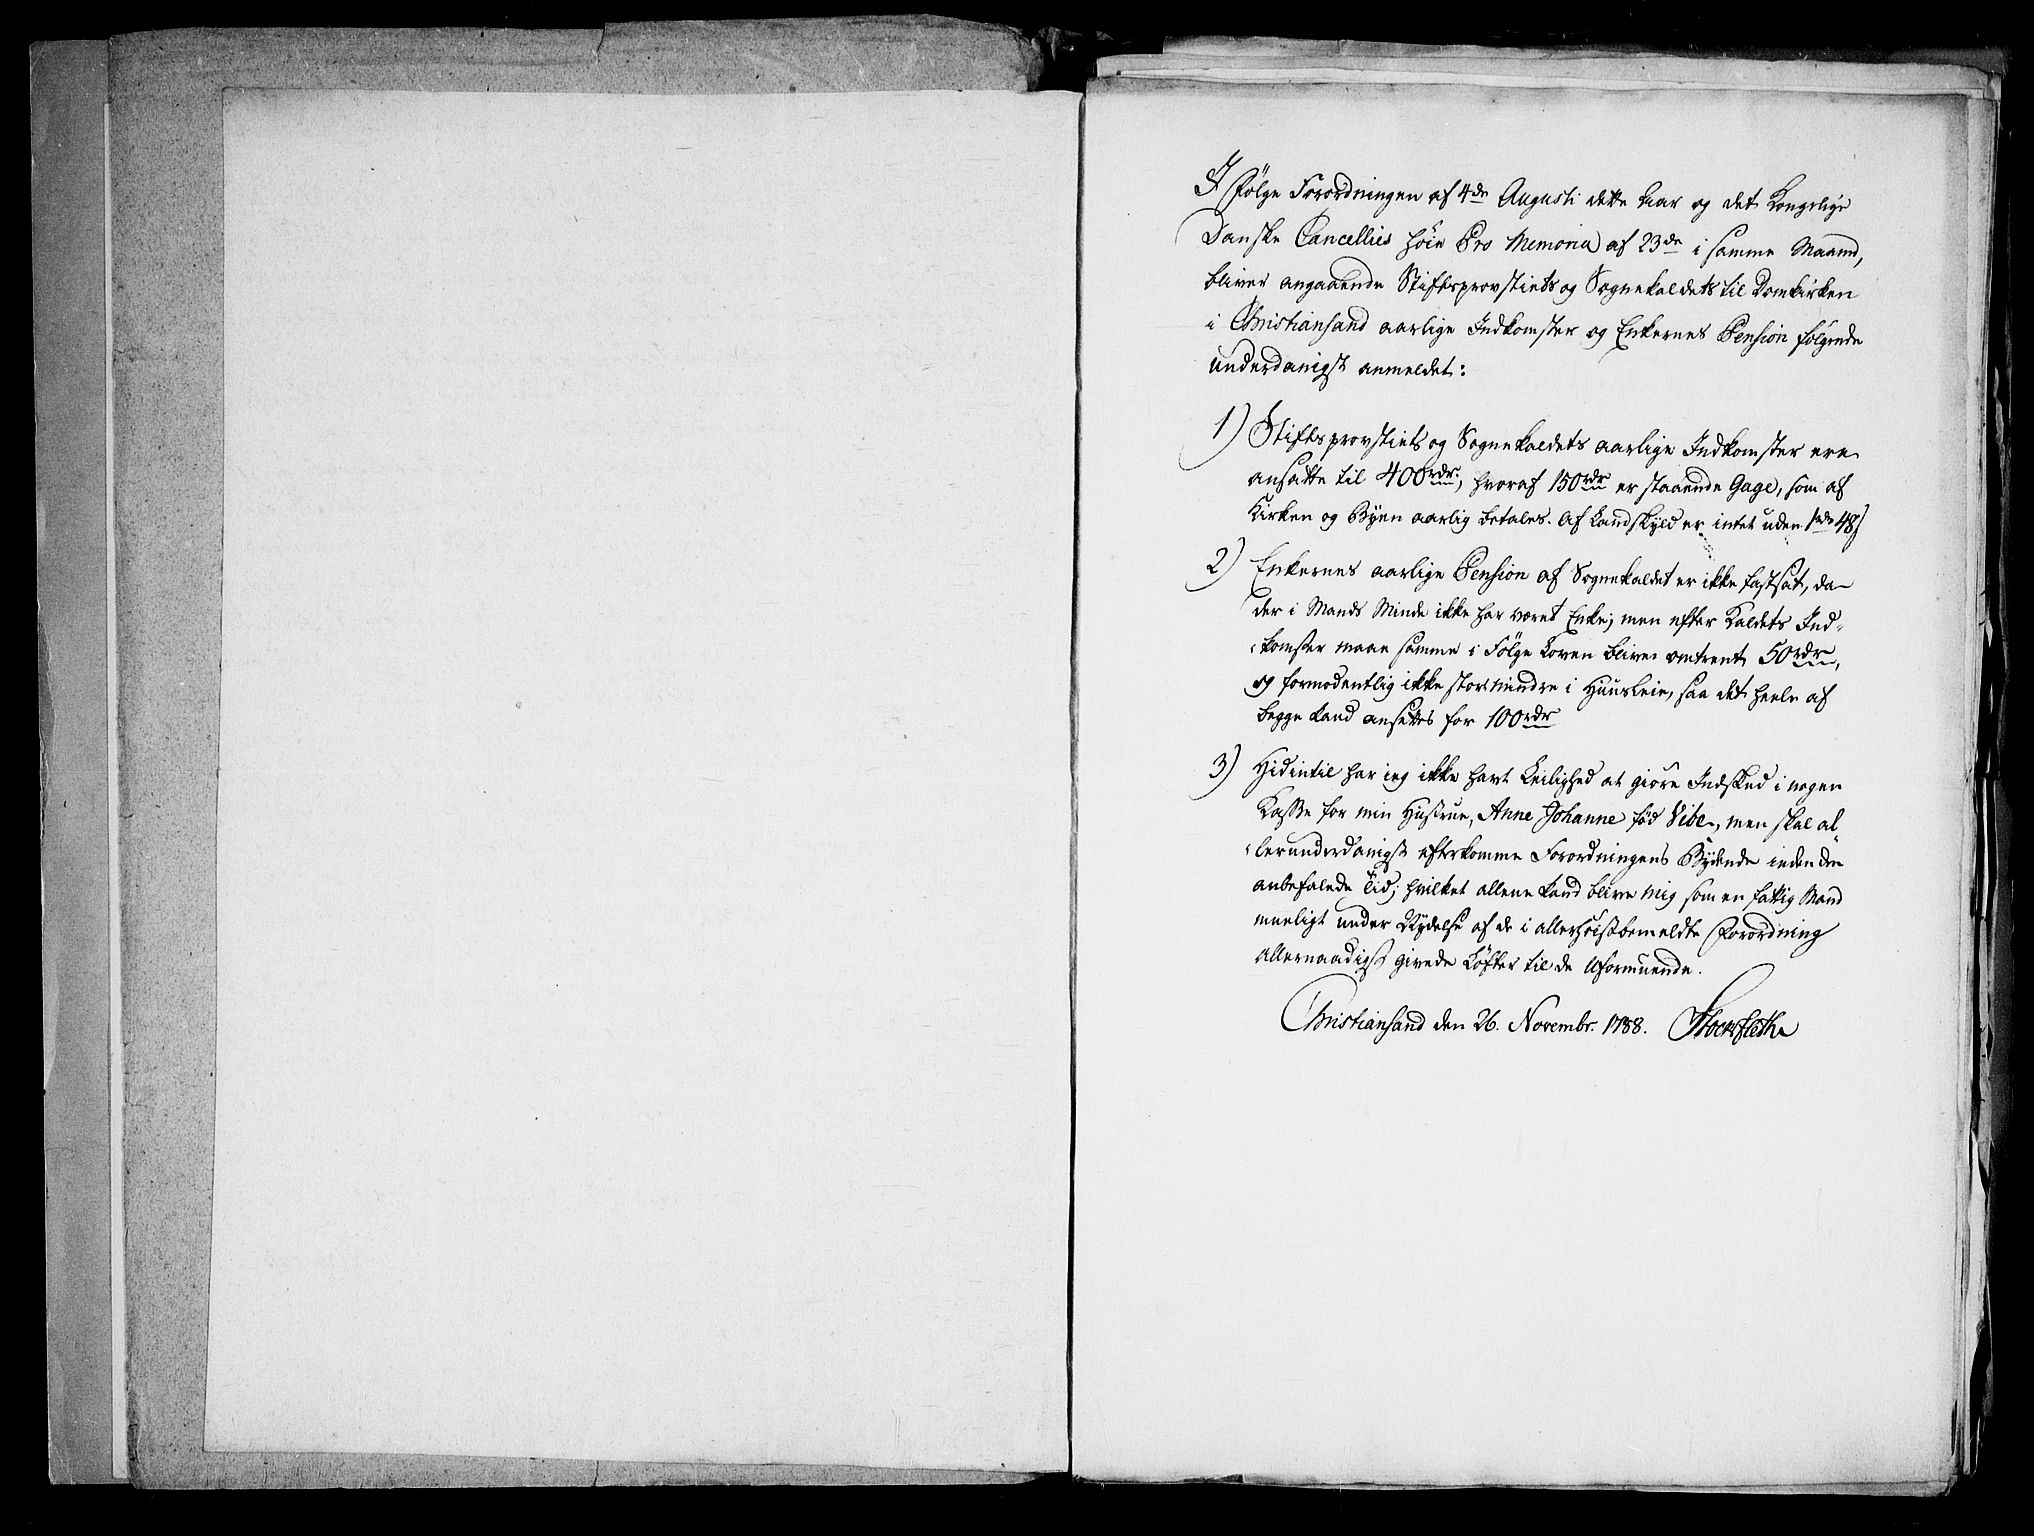 I Følge Forordningen af 4de Augusti dette Aar og det Kongelige
Danske Cancellies høie Pro Memoria af 23de i samme Maaned,
bliver angaaende Stiftsprovstiets og Sognekaldets til Domkirken
i Christiansand aarlige Indkomster og Enkernes Pension følgende
underdanigst anmeldet:
1) Stiftsprovstiets og Sognekaldets aarlige Indkomster ere
ansatte til 400rdr., hvoraf 150rdr er staaende Gage, som af
Kirken og Byen aarlig betales. Af Landskyld er intet uden 1rdr 48s
2) Enkernes aarlige Pension af Sognekaldet er ikke fastsat, da
der i Mands Minde ikke har været Enke; men efter Kaldets Ind-
komster maae samme i Følge Loven blive omtrent 50rdr,
og formodentlig ikke stor mindre i Huusleie, saa det heele af
begge kand ansættes for 100rdr
3) Hidintil har jeg ikke havt Leilighed at giøre Indskud i nogen
Kasse for min Hustrue, Anne Johanne fød Vibe, men skal al-
lerunderdanigst efterkomme Forordningens Bydende inden den
anbefalede Tid; hvilket allene kand blive mig som en fattig Mand
mueligt under Nydelse af de i allerhøistbemeldte Forordning
allernaadigst givede Løfter til de Uformuende.
Christiansand den 26. Novembr. 1788. Stockfleth